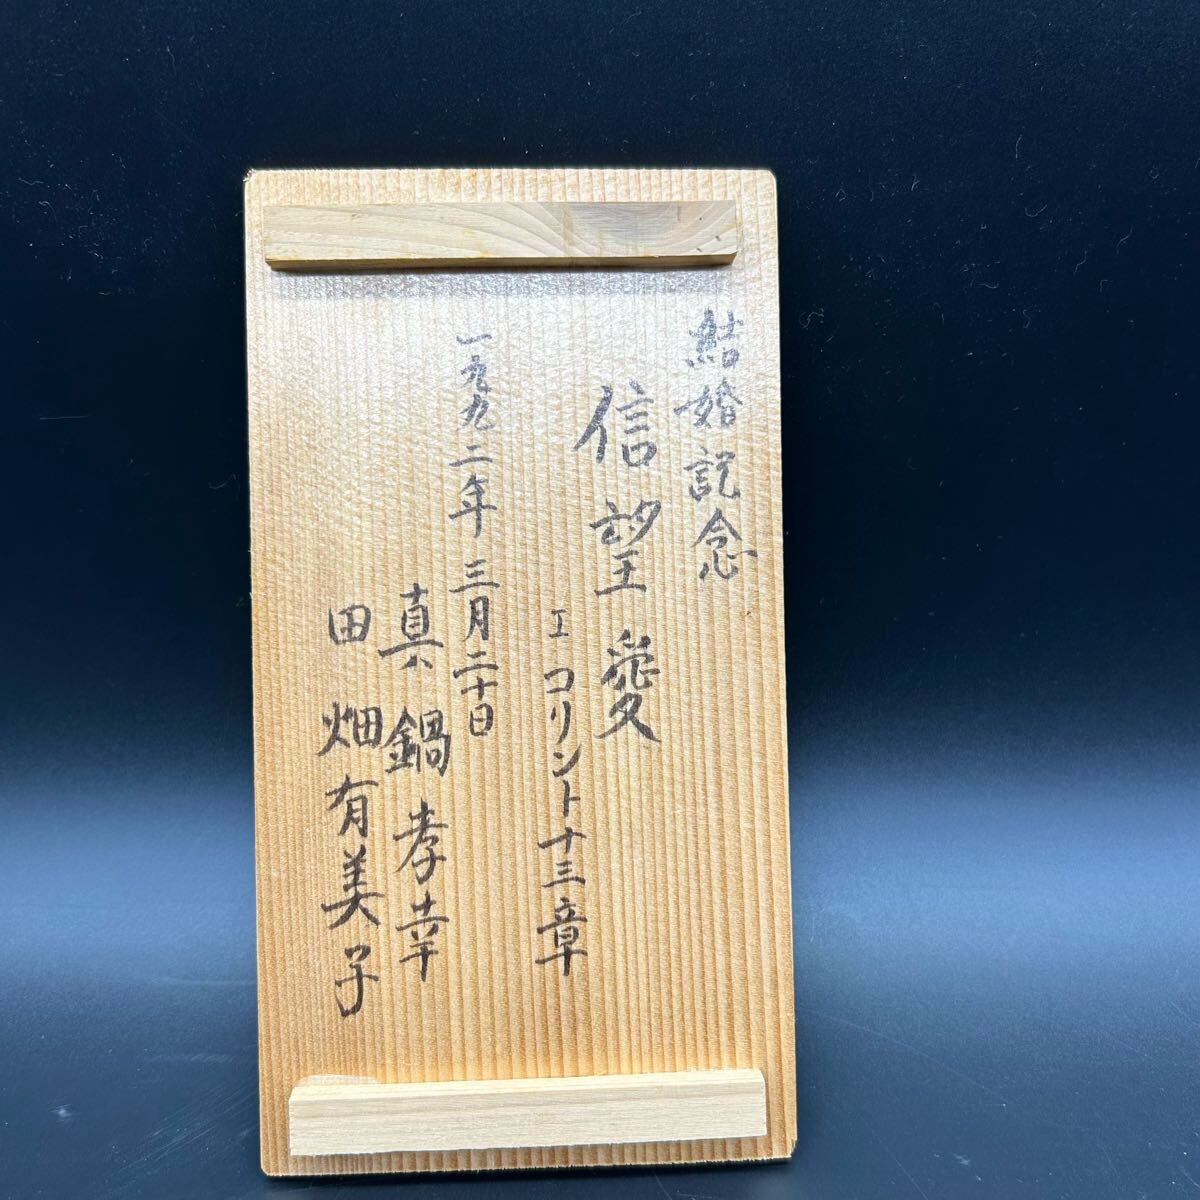 結婚記念
信望愛
Iコリント十三章
一九九二年三月二十日
真鍋孝幸
田畑有美子